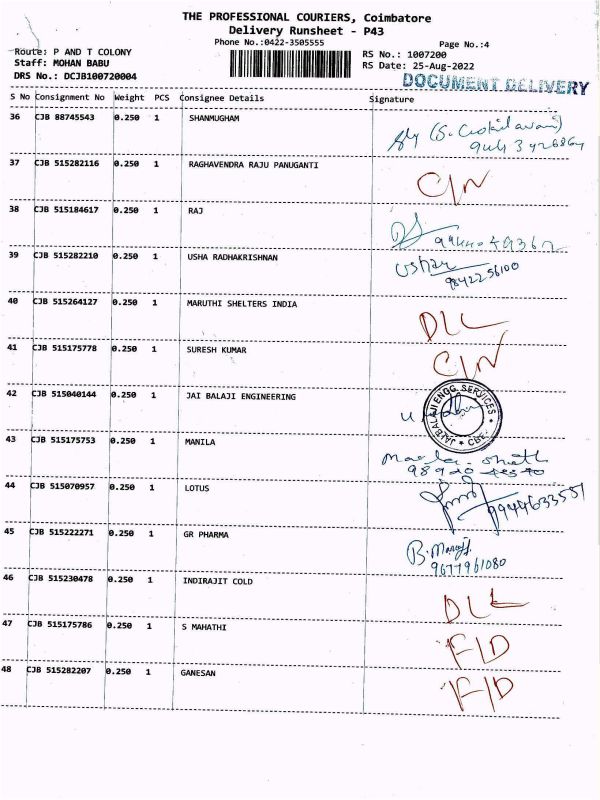 THE PROFESSIONAL COURIERS, Coimbatore
Delivery Runsheet - P43
Phone No.:0422-3505555
Page No.:4
Route: P AND T COLONY
RS No.: 1007200
Staff: MOHAN BABU
RS Date: 25-Aug-2022
DRS No.: DCJB100720004
DOCUMENT DELIVERY
S No Consignment No Weight PCS Consignee Details Signature
36 CJB 88745543 0.250 1 SHANMUGHAM
37 CJB 515282116 0.250 1 RAGHAVENDRA RAJU PANUGANTI C/N
38 CJB 515184617 0.250 1 RAJ
39 CJB 515282210 0.250 1 USHA RADHAKRISHNAN
9842256100
40 CJB 515264127 0.250 1 MARUTHI SHELTERS INDIA DLL
41 CJB 515175778 0.250 1 SURESH KUMAR C/N
42 CJB 515040144 0.250 1 JAI BALAJI ENGINEERING
JAIBALAJI ENGG SERVICES
CBE.
43 CJB 515175753 0.250 1 MANILA
44 CJB 515070957 1 LOTUS
9944633551
45 CJB 515222271 0.250 1 GR PHARMA
9677961080
46 CJB 515230478 0.250 1 INDIRAJIT COLD DLL
47 CJB 515175786 0.250 1 S MAHATHI F/D
48 CJB 515282207 0.250 1 GANESAN F/D